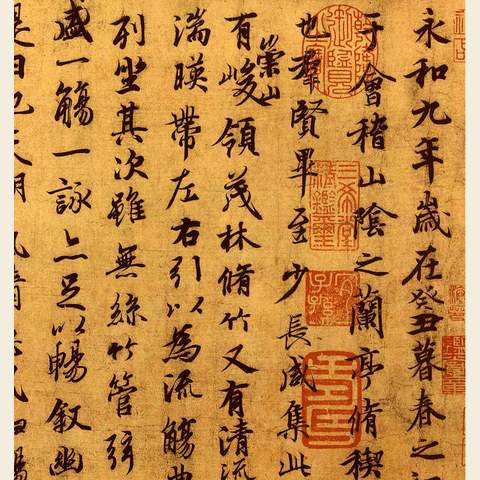 永和九年歲在癸丑暮春之
于會稽山陰之蘭亭脩稧
也群賢畢至少長咸集此
有崇山峻領茂林脩竹又有清流
湍暎帶左右引以為流觴曲
列坐其次雖無絲竹管弦
盛一觴一詠亦足以暢叙幽
是日也天朗氣清
三希堂精鑑璽
宜子孫